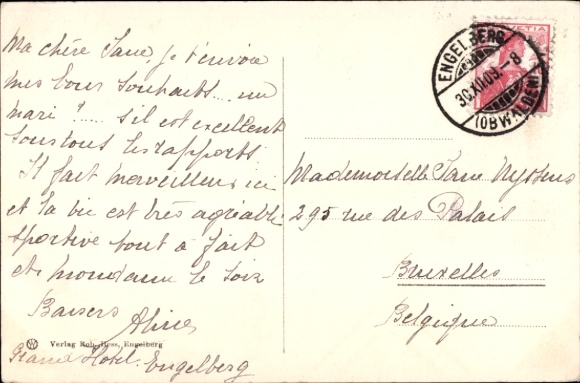 Ma chère Jane, je t'envoie
mes bons souhaits.... un
mari ?..... s'il est excellent
sous tous les rapports.
Il fait merveilleux ici
et la vie est très agréable
sportive tout à fait
et mondaine le soir
Baisers Aline
Grand Hotel. Engelberg
Verlag Rob. Hess, Engelberg
HELVETIA
ENGELBERG
30.XII.09.-8
(OBWALDEN)
Mademoiselle Jane Nyssens
295 rue des Palais
Bruxelles
Belgique